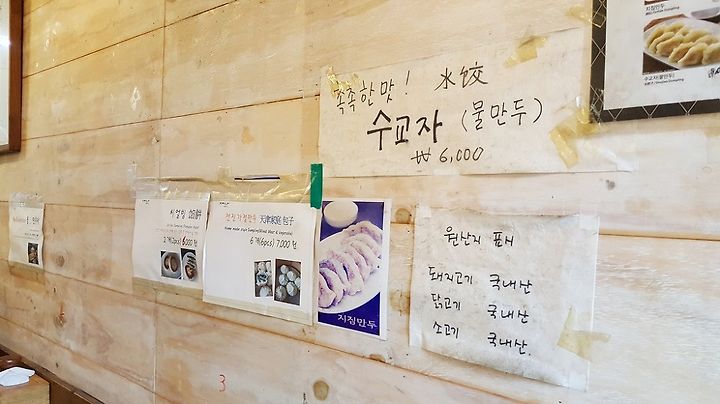 촉촉한맛! 水餃
수교자 (물만두)
₩ 6,000
지짐만두
수교자(물만두)
시엘삥 餡餅
2개(2pcs) 6,000원
천진가정만두 天津家庭包子
Home made style Dumpling(Mixed Meat & Vegetable)
6개(6pcs) 7,000원
지짐만두
원산지 표시
돼지고기 국내산
닭고기 국내산
소고기 국내산.
3